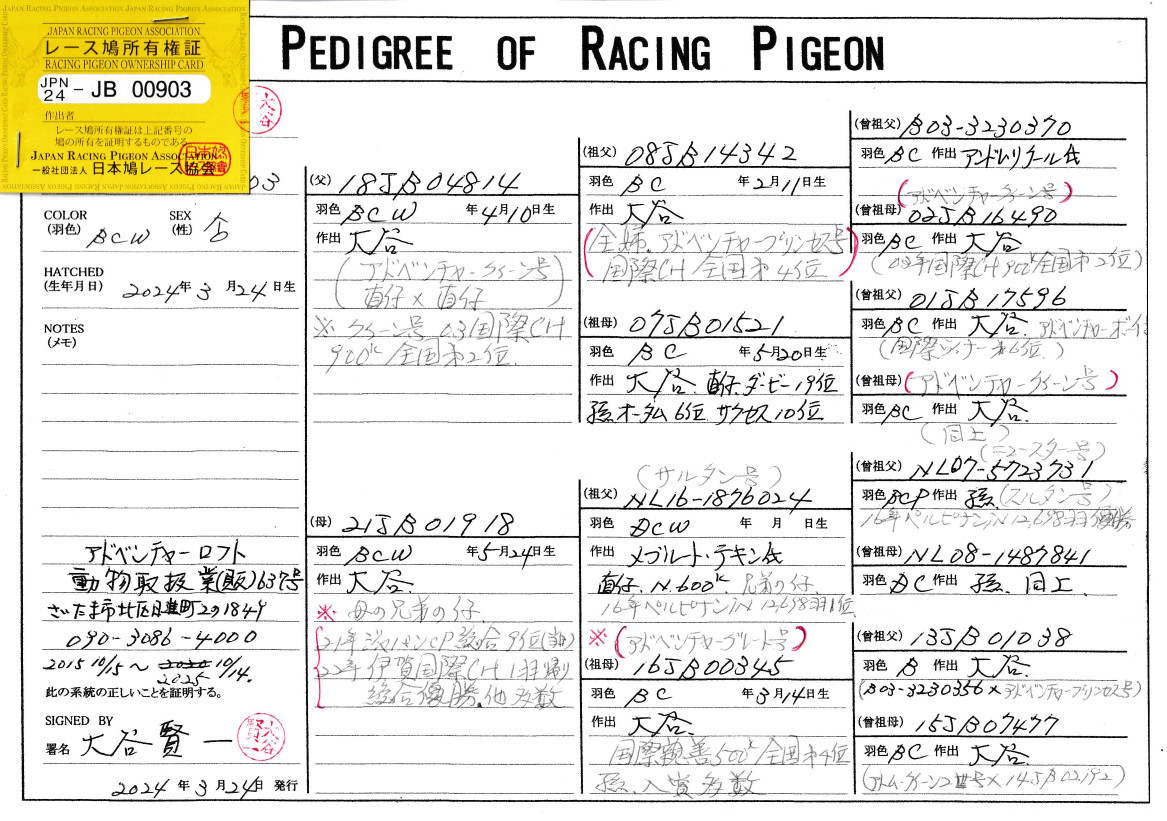 JAPAN RACING PIGEON ASSOCIATION
レース鳩所有権証
RACING PIGEON OWNERSHIP CARD
JPN
24 - JB 00903
作出者
レース鳩所有権証は上記番号の
鳩の所有を証明するものである
JAPAN RACING PIGEON ASSOCIATION
一般社団法人 日本鳩レース協会
大谷
PEDIGREE OF RACING PIGEON
03
COLOR
(羽色) BCW
SEX
(性) ♂
HATCHED
(生年月日) 2024年3月24日生
NOTES
(メモ)
アドベンチャーロフト
動物取扱業(販)637号
さいたま市北区日進町2の1849
090-3086-4000
2015 10/15 〜 2025 10/14.
此の系統の正しいことを証明する。
SIGNED BY
署名 大谷賢一
2024年3月24日 発行
(父) 18JB04814
羽色 BCW 年4月10日生
作出 大谷
(アドベンチャークイーン号)
直仔×直仔
※クイーン号 03国際CH
900K全国第2位
(母) 21JB01918
羽色 BCW 年5月24日生
作出 大谷
※ 母の兄弟の仔
21年ジャパンCP総合9位
22年伊賀国際CH 1羽帰り
総合優勝.他多数
(祖父) 08JB14342
羽色 BC 年2月11日生
作出 大谷
全姉.アドベンチャープリンセス号
国際CH全国第4位
(祖母) 07JB01521
羽色 BC 年5月20日生
作出 大谷. 直仔.ダービー19位
孫.オータム6位 サクセス10位
(サルタン号)
(祖父) NL16-1876024
羽色 DCW 年 月 日生
作出 メブルート・テキン氏
直仔.N.600K 兄弟の仔
16年ペルピナンiN 12,698羽1位
※(アドベンチャーグレート号)
(祖母) 16JB00345
羽色 BC 年3月14日生
作出 大谷
国際親善500K全国第4位
孫.入賞多数
(曾祖父) B03-3230370
羽色 BC 作出
(アドベンチャークイーン号)
(曾祖母) 02JB16490
羽色 BC 作出 大谷
(03年国際CH900K全国第2位)
(曾祖父) 01JB17596
羽色 BC 作出 大谷 アドベンチャーボーイ
(国際 第6位)
(曾祖母) (アドベンチャークイーン号)
羽色 BC 作出 大谷.
(同上)
(ニュースター号)
(曾祖父) NL07-5723731
羽色 BCP 作出 孫.(スルタン号)
16年ペルピナンiN 12,698羽優勝
(曾祖母) NL08-1487841
羽色 DC 作出 孫.同上
(曾祖父) 13JB01038
羽色 B 作出 大谷.
(B03-3230356×アドベンチャープリンセス号)
(曾祖母) 15JB07477
羽色 BC 作出 大谷.
×14JB02192)